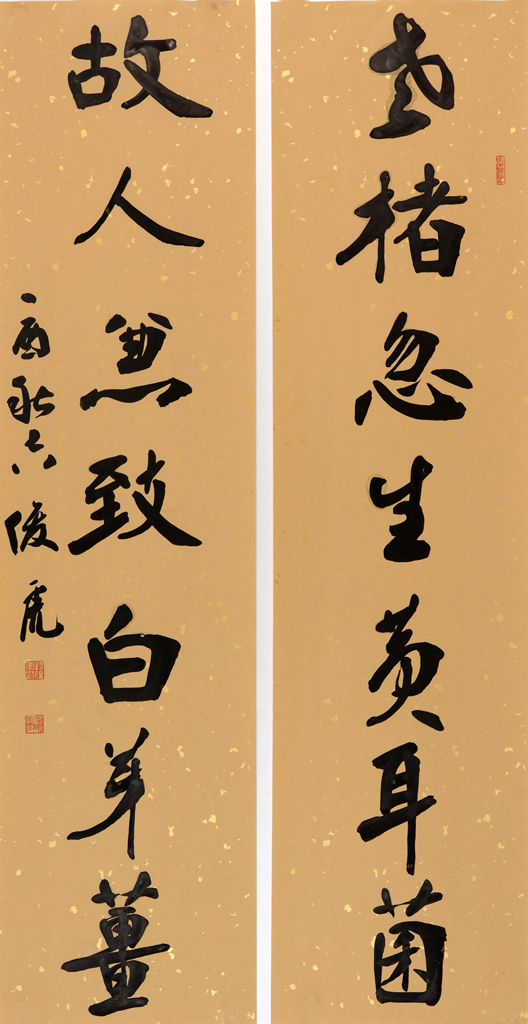 老楮忽生黄耳菌
故人兼致白芽薑
酉秋俊虎